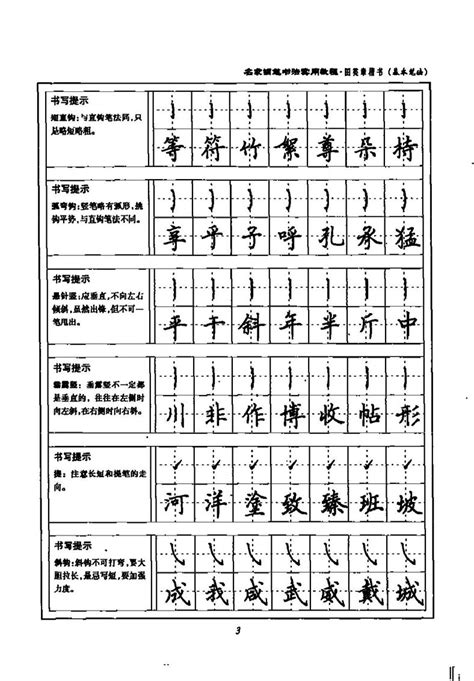 名家钢笔书法实用教程·田英章楷书(基本笔法)
书写提示
短直钩:与直钩笔法同,只
是略短略粗。
等 符 竹 絮 尊 朵 持
书写提示
弧弯钩:竖笔略有弧形,挑
钩平势,与直钩笔法不同。
享 乎 子 呼 孔 承 猛
书写提示
悬针竖:应垂直,不向左右
倾斜,虽然出锋,但不可一
笔甩出。
平 干 斜 年 半 斤 中
书写提示
垂露竖:垂露竖不一定都
是垂直的,往往在左侧时
向左斜,在右侧时向右斜。
川 非 作 博 收 帖 形
书写提示
提:注意长短和提笔的走
向。
河 洋 塗 致 臻 班 坡
书写提示
斜钩:斜钩不可打弯,要大
胆拉长,最忌写短,要加强
力度。
成 我 咸 武 威 戴 城
3